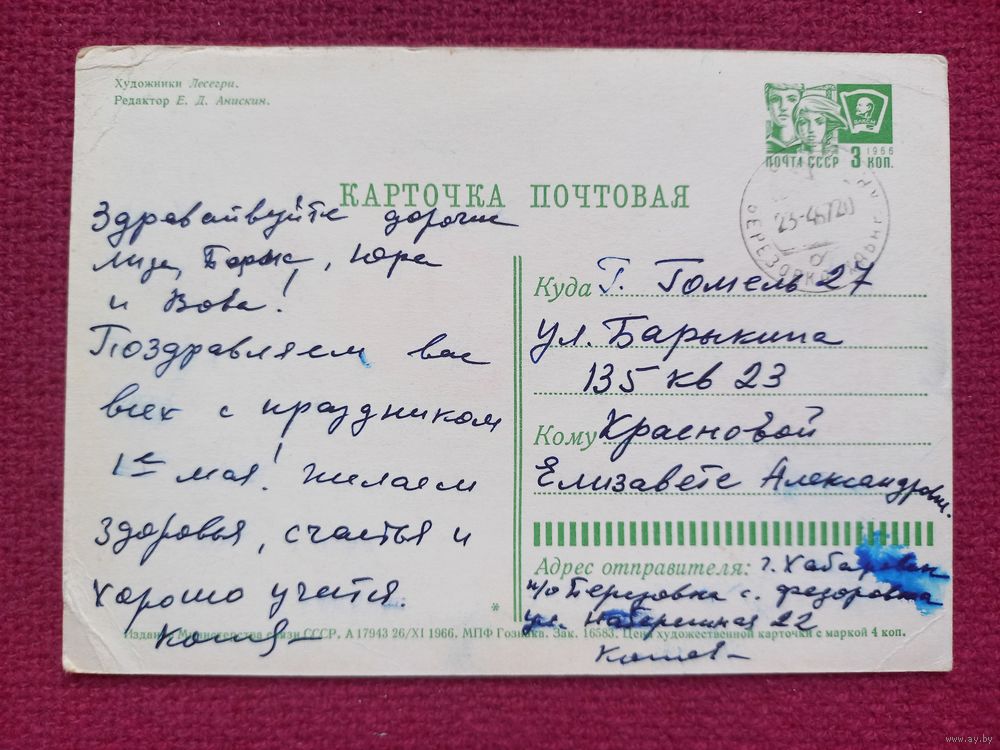 Художники Лесегри.
Редактор Е. Д. Анискин.
ВЛКСМ
1966
ПОЧТА СССР 3 КОП.
КАРТОЧКА ПОЧТОВАЯ
Здравствуйте дорогие
Лиза, Боря, Юра
и Вова!
Поздравляем вас
всех с праздником
1е мая! Желаем
здоровья, счастья и
хорошо учится.
Куда г. Гомель 27
ул. Барыкина
135 кв 23
Кому Красновой
Елизавете Александровн.
Адрес отправителя: г. Хабаровск
п/о Березовка с. Федоровка
ул. Набережная 22
* Издание Министерства связи СССР. А 17943 26/XI 1966. МПФ Гознака. Зак. 16583. Цена художественной карточки с маркой 4 коп.
БЕРЕЗОВКА
www.ay.by